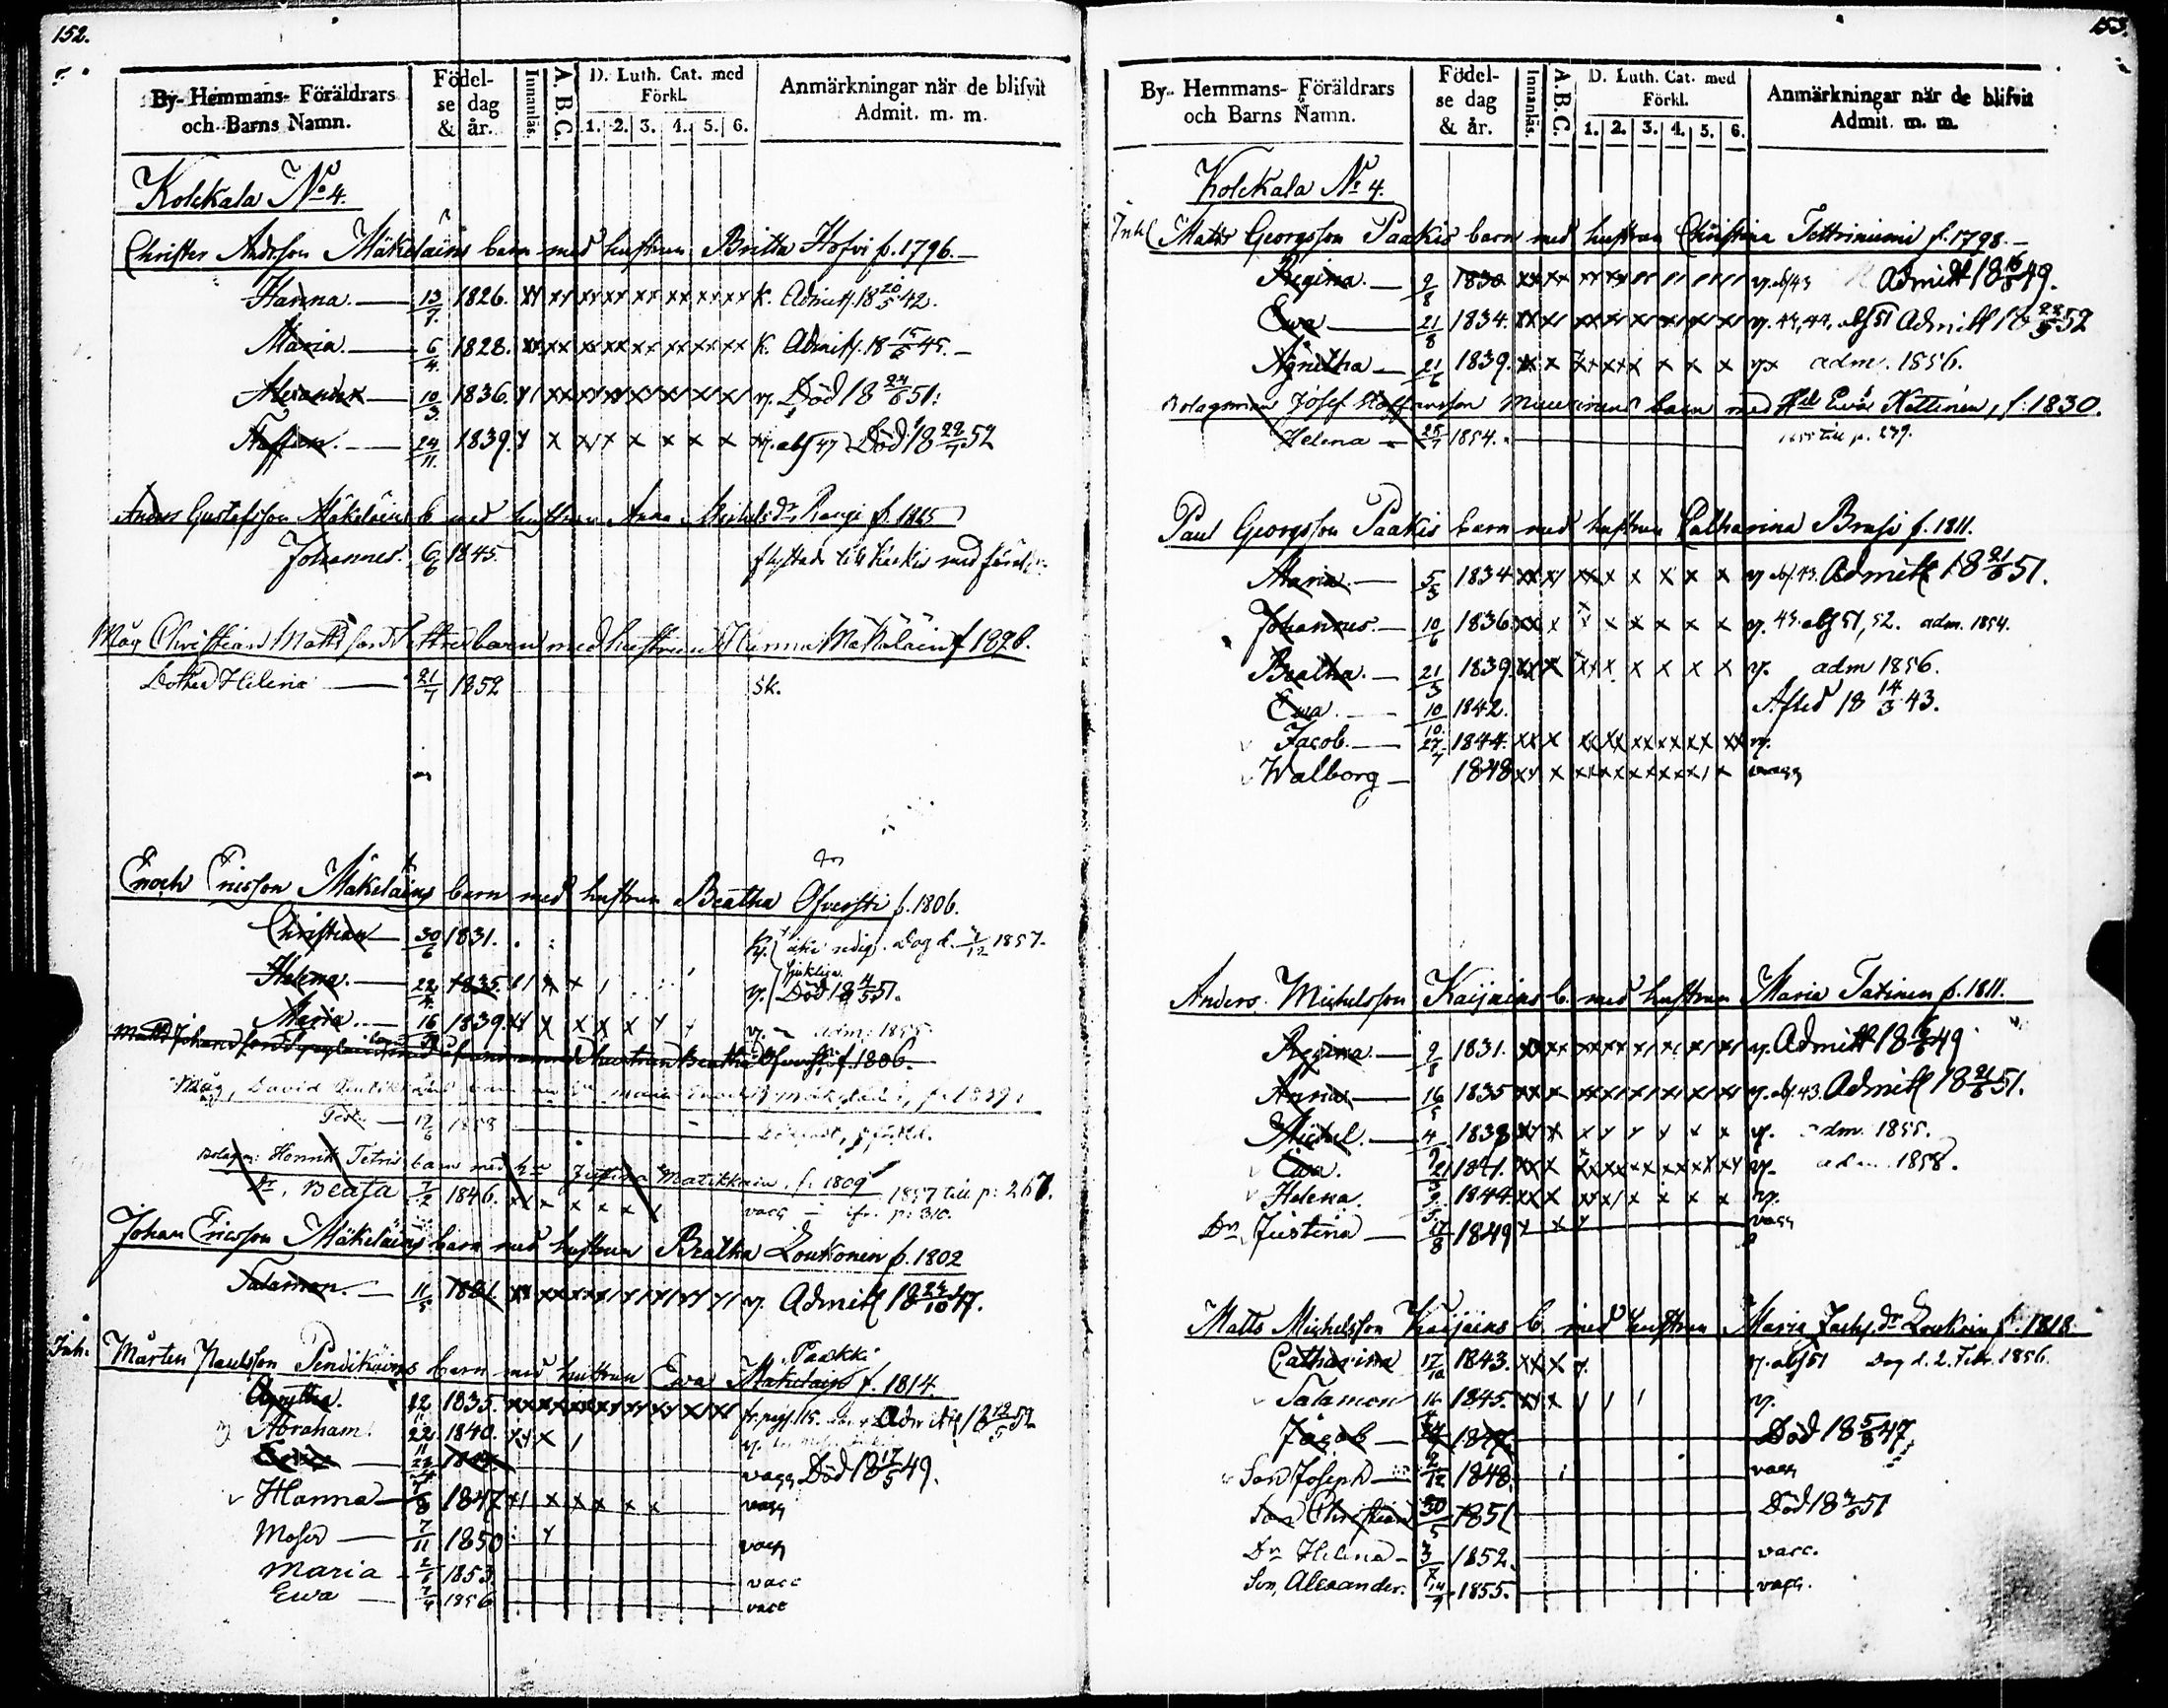 152.
By- Hemmans- Föräldrars och Barns Namn.
Födelse dag & år.
Innanläs.
A. B. C.
D. Luth. Cat. med Förkl.
1. 2. 3. 4. 5. 6.
Anmärkningar när de blifvit Admit. m. m.
Kolckala No 4.
Christer Andrsson Mäkeläins barn med hustrun Britta Hofvi f. 1796.
Hanna. 13/7 1826. K. Admitt. 18 20/5 42.
Maria. 6/4 1828. K. Admitt. 18 15/6 45.
Alexander 10/3 1836. v. Död 18 24/6 51.
Staffan. 24/11 1839. v. abs 47 Död 18 29/1 52
Anders Gustafsson Mäkeläins b. med hustrun Anna Michelsdr Rangi f. 1825
Johannes. 6/6 1845. flyttade till
Måg Christian Mattsson barn med hustrun Hanna Mäkeläin f 1826.
Dotter Helena 21/7 1852 sk.
Enoch Ericsson Mäkeläins barn med hustrun Beatha Öfversti f. 1806.
Christian 30/6 1831. icke redig. Dog d. /12 1857.
Helena. 22/4 1835. v. sjuklig. Död 18 4/5 51.
Maria. 16/ 1839. v. adm: 1855.
Matts Johansson hustrun Beatha Öfversti f. 1806.
Måg, David Maria Enochsdr Mäkeläin, f. 1839.
17/6 1858
Bolagm: Henrik Tetris barn med hu Justina Matikkain. f. 1809 1857 till p: 267.
Dr. Beata 7/2 1846. vacc p: 310.
Johan Ericsson Mäkeläins barn med hustrun Beatha Loukonen f. 1802
Salamon. 11/5 1831. v. Admitt 18 24/10 47.
Inh. Mårten Paulsson Pendikäins barn med hustrun Ewa Paakki Mäkeläin f. 1814.
Agnetha. 12/11 1835. Admitt 18 /5 52
Abraham. 22/11 1840. v.
vacc Död 18 17/5 49.
Hanna 1847 vacc
Moses 7/11 1850 vacc
Maria 2/6 1853 vacc
Ewa 7/4 1856 vacc
153.
By- Hemmans- Föräldrars och Barns Namn.
Födelse dag & år.
Innanläs.
A. B. C.
D. Luth. Cat. med Förkl.
1. 2. 3. 4. 5. 6.
Anmärkningar när de blifvit Admit. m. m.
Kolckala No 4.
Inh Matts Georgsson Paakis barn med hustrun Christina Tettriniemi f. 1798.
Regina. 9/8 1830 v. abs 43 Admitt 18 16/6 49.
Ewa 21/8 1834. v. 43, 44, abs 51 Admitt 18 23/5 52
Agnetha 21/6 1839. v adm. 1856.
Bolagsman Josef Staffansson barn med Hu Eva Kettinen, f. 1830.
Helena 25/7 1854. 1855 till p. 279.
Paul Georgsson Paakis barn med hustrun Catharina Brusi f. 1811.
Maria. 5/3 1834 v abs. 43. Admitt 18 21/6 51.
Johannes. 10/6 1836 v. 43. abs 51, 52. adm. 1854.
Beatha. 21/3 1839. v. adm 1856.
Ewa. 10/10 1842. Afled 18 14/3 43.
Jacob. 27/7 1844. v.
Walborg 1848 vacc
Anders Michelsson Kaijains b. med hustrun Maria Tatinen f. 1811.
Regina. 9/8 1831. v. Admitt 18 16/6 49
Anna. 16/5 1835 v. abs. 43. Admitt 18 21/6 51.
Michel. 4/9 1838 v. adm. 1855.
Ewa. 21/ 1841. v. adm. 1858.
Helena 9/5 1844. v.
Dr. Justina 17/8 1849 vacc
Matts Michelsson Kaijains b. med hustrun Maria Zachs.dr Loukoin f. 1818.
Catharina 17/10 1843. v. abs 51 Dog d. 2. Febr. 1856.
Salamon 16/ 1845. v.
Jacob 1847. Död 18 5/8 47
Son Joseph 9/12 1848. vacc
Son Christian 30/5 1851 Död 18 /6 51
Dr Helena 3/7 1852. vacc.
Son, Alexander. 14/7 1855. vacc.